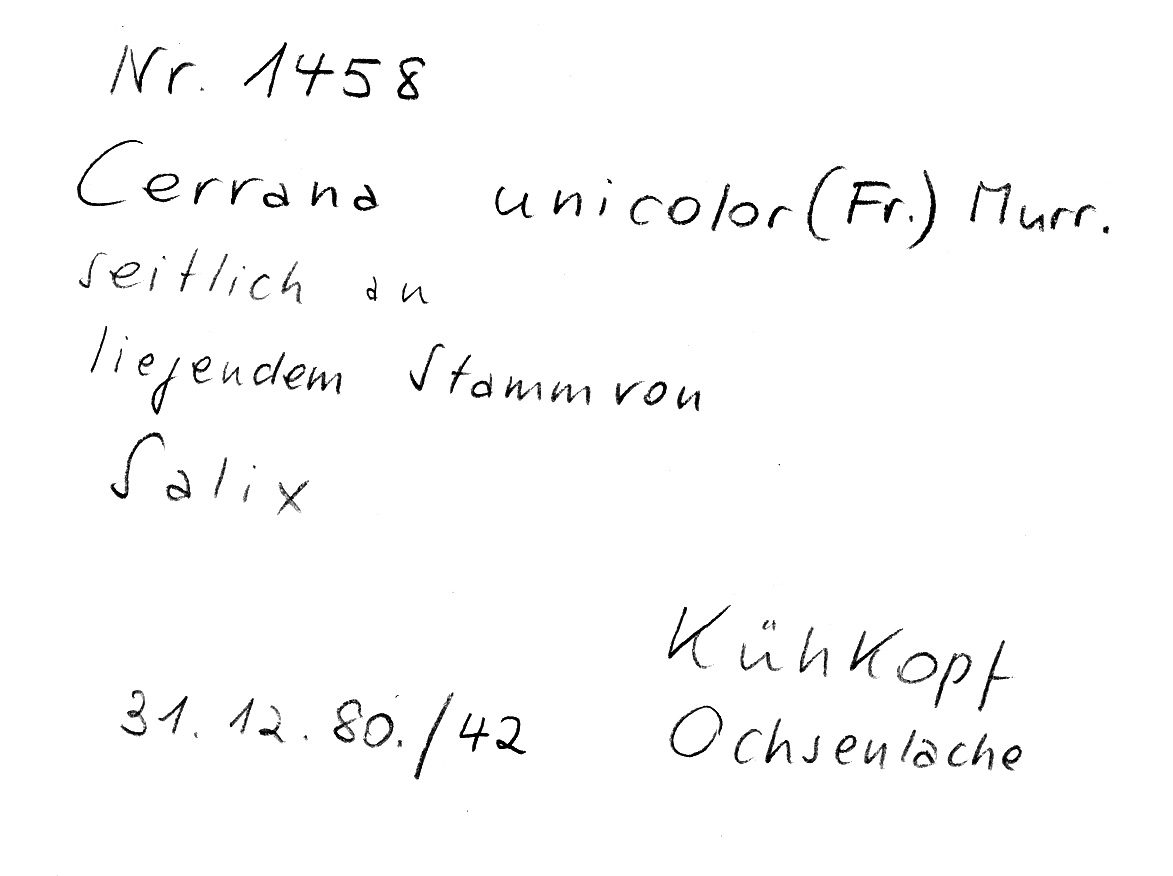 Nr. 1458
Cerrana unicolor (Fr.) Murr.
seitlich an
liegendem Stamm von
Salix
Kühkopf
31.12.80./42 Ochsenlache